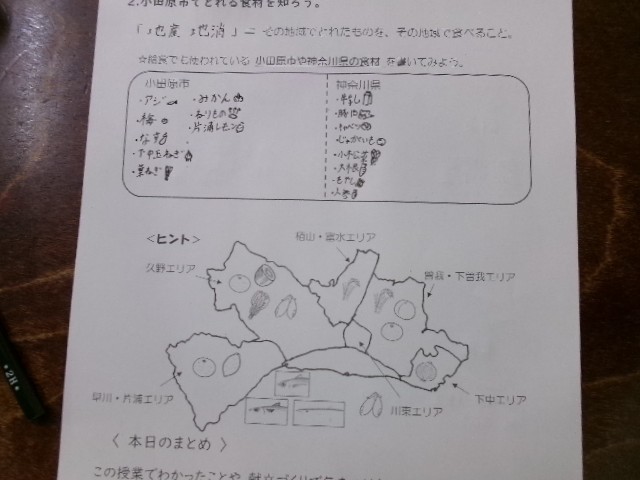 2.小田原市でとれる食材を知ろう。
「地産地消」＝その地域でとれたものを、その地域で食べること。
☆給食で使われている 小田原市や神奈川県の食材 を書いてみよう。
小田原市
・アジ
・梅
・なす
・下中玉ねぎ
・葉ねぎ
・みかん
・片浦レモン
神奈川県
・牛乳
・豚肉
・キャベツ
・じゃがいも
・小松菜
・大根
・もやし
・人参
＜ヒント＞
久野エリア
栢山・富水エリア
曽我・下曽我エリア
早川・片浦エリア
川東エリア
下中エリア
〈 本日のまとめ 〉
この授業でわかったことや
2H